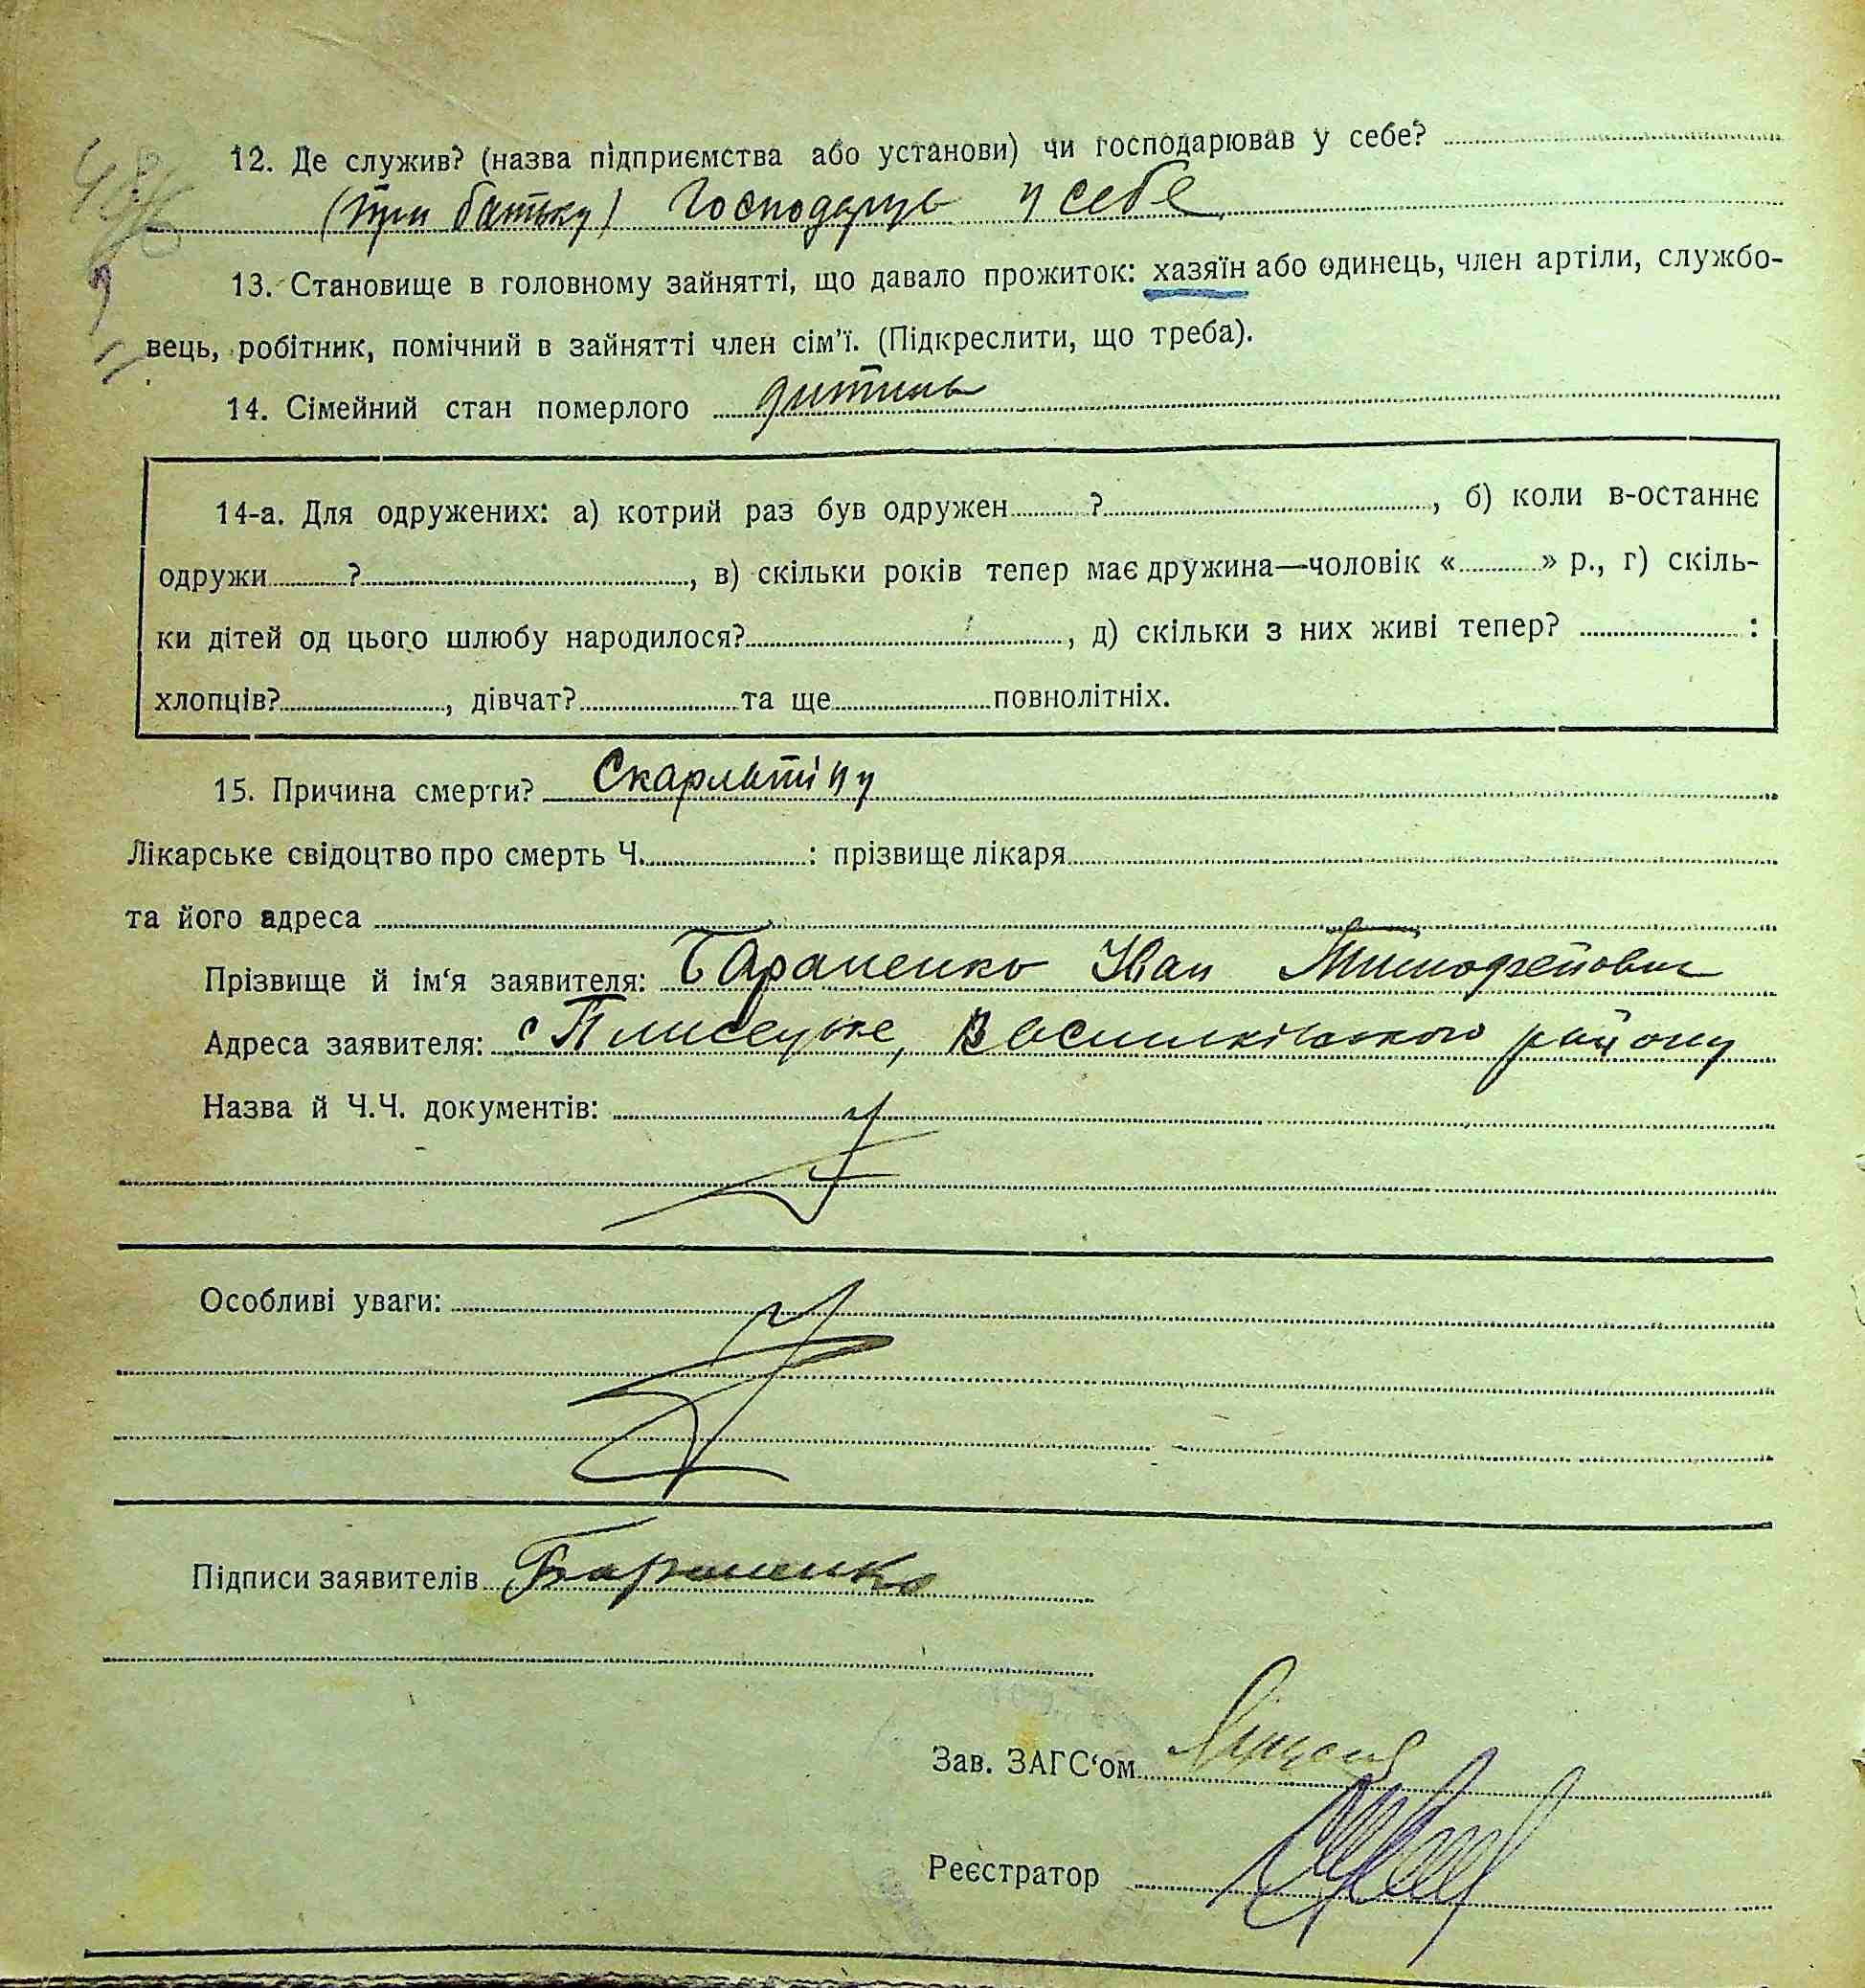 12. Де служив? (назва підприємства або установи) чи господарював у себе?
(при батьку) Господарув у себе
13. Становище в головному зайнятті, що давало прожиток: хазяїн або одинець, член артіли, службо-
вець, робітник, помічний в зайнятті член сім'ї. (Підкреслити, що треба).
14. Сімейний стан померлого дитина
14-а. Для одружених: а) котрий раз був одружен ? , б) коли в-останнє
одружи ? , в) скільки років тепер має дружина—чоловік « » р., г) скіль-
ки дітей од цього шлюбу народилося? , д) скільки з них живі тепер? :
хлопців? , дівчат? та ще повнолітніх.
15. Причина смерти? Скарлатіну
Лікарське свідоцтво про смерть Ч. : прізвище лікаря
та його адреса
Прізвище й ім'я заявителя: Бараненко Иван Тимофеїович
Адреса заявителя: с Плисецьке, Васильківського району
Назва й Ч.Ч. документів:
Особливі уваги:
Підписи заявителів Бараненко
Зав. ЗАГС'ом
Реєстратор